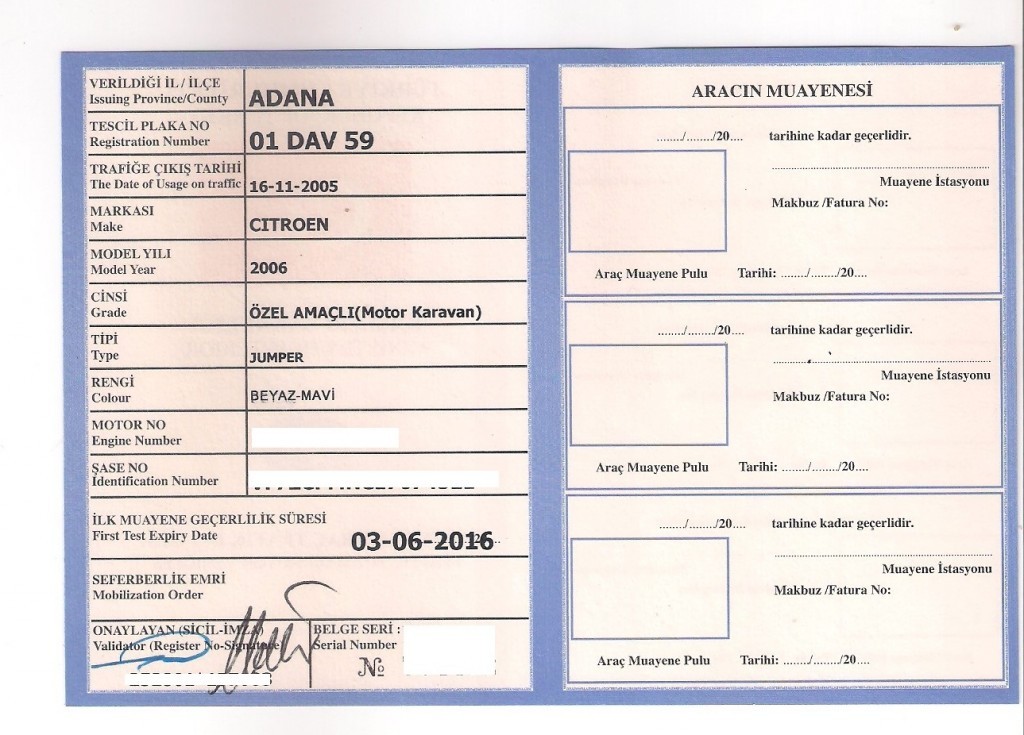 VERİLDİĞİ İL / İLÇE
Issuing Province/County
ADANA
TESCİL PLAKA NO
Registration Number
01 DAV 59
TRAFİĞE ÇIKIŞ TARİHİ
The Date of Usage on traffic
16-11-2005
MARKASI
Make
CITROEN
MODEL YILI
Model Year
2006
CİNSİ
Grade
ÖZEL AMAÇLI(Motor Karavan)
TİPİ
Type
JUMPER
RENGİ
Colour
BEYAZ-MAVİ
MOTOR NO
Engine Number
ŞASE NO
İdentification Number
İLK MUAYENE GEÇERLİLİK SÜRESİ
First Test Expiry Date
03-06-2016
SEFERBERLİK EMRİ
Mobilization Order
ONAYLAYAN (SİCİL-İMZA)
Validator (Register No-Signature)
BELGE SERİ :
Serial Number
№
ARACIN MUAYENESİ
......./......../20.... tarihine kadar geçerlidir.
Muayene İstasyonu
Makbuz /Fatura No:
Araç Muayene Pulu Tarihi: ......./......../20....
......./......../20.... tarihine kadar geçerlidir.
Muayene İstasyonu
Makbuz /Fatura No:
Araç Muayene Pulu Tarihi: ......./......../20....
......./......../20.... tarihine kadar geçerlidir.
Muayene İstasyonu
Makbuz /Fatura No:
Araç Muayene Pulu Tarihi: ......./......../20....